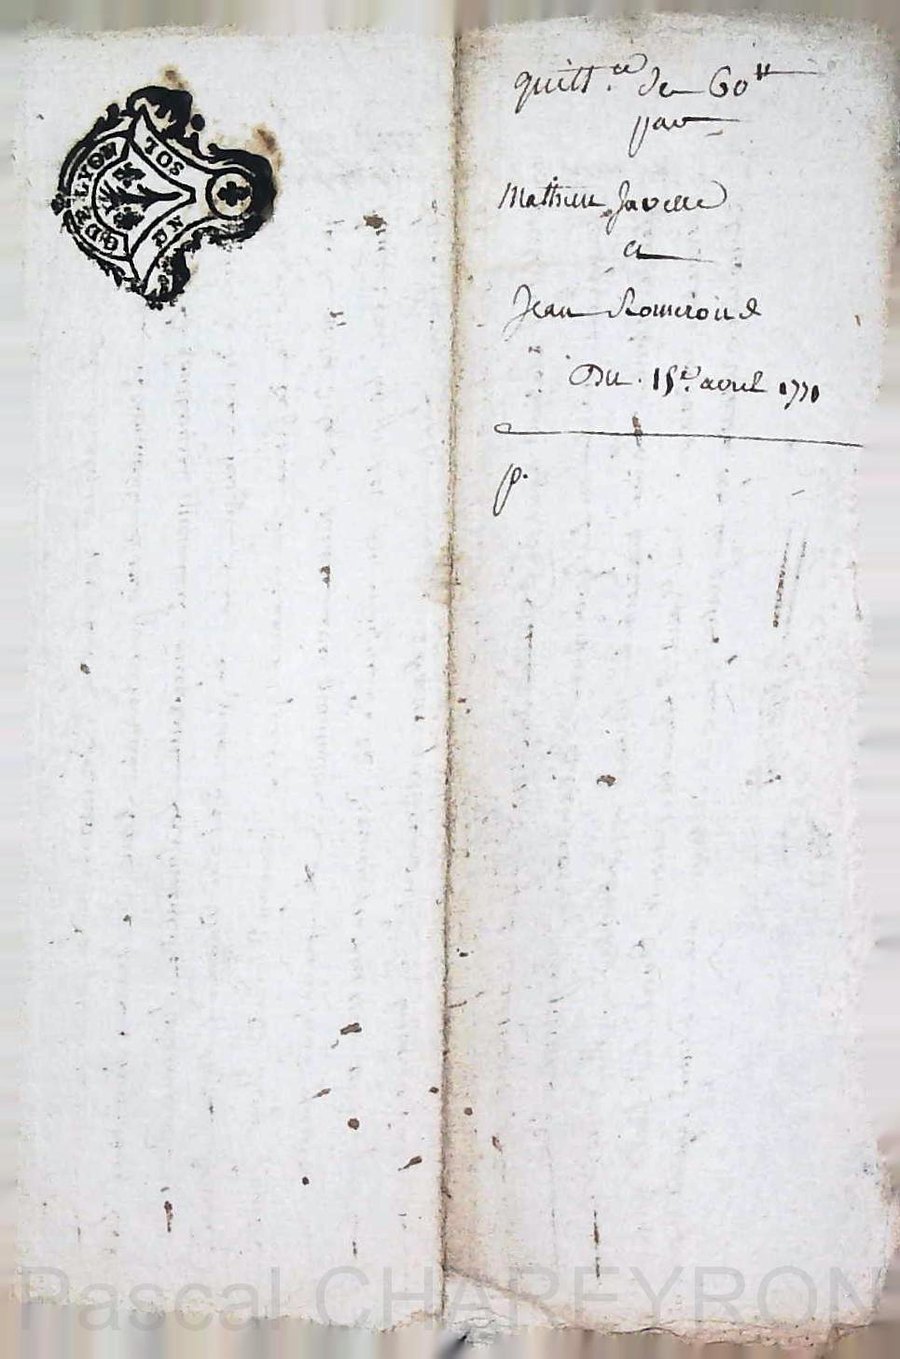 G DE LYON
UN
SOL
quitt.ce de 60 ₶
par
Mathieu Javelle
a
Jean
Du 15e. avril 1771
p.
Pascal CHAREYRON